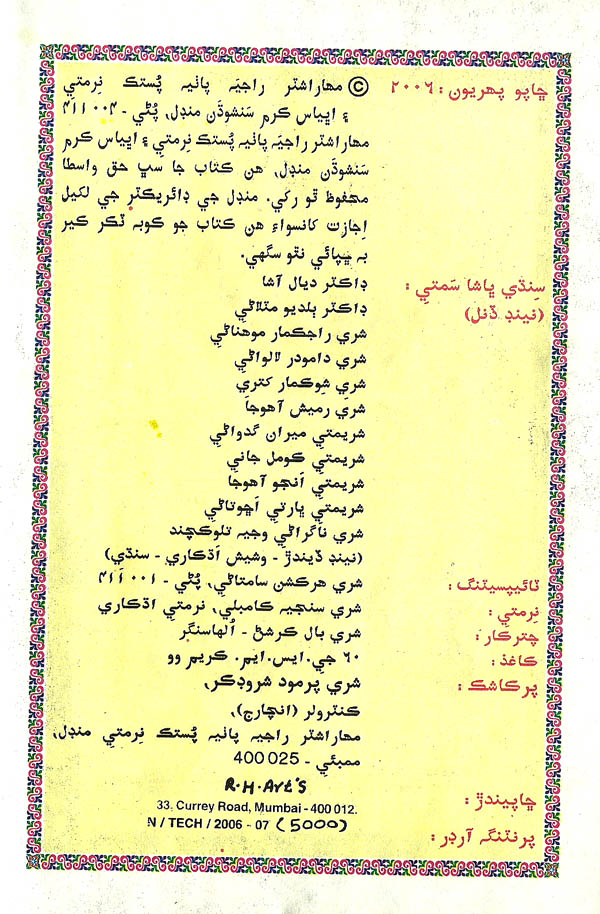 ڇاپو پهريون : ۲۰۰۶
© مهاراشٽر راجيَہ پاٺيہ پُستڪ نِرمتي
۽ اڀياس ڪرم سَنشوڌَن منڊل، پُڻي - ۴۱۱۰۰۴
مهاراشٽر راجيَہ پاٺيہ پُستڪ نِرمتي ۽ اڀياس ڪرم
سَنشوڌَن منڊل، هن ڪتاب جا سڀ حق واسطا
محفوظ ٿو رکي. منڊل جي ڊائريڪٽر جي لکيل
اِجازت کانسواءِ هن ڪتاب جو ڪوبہ ٽڪر ڪير
بہ ڇپائي نٿو سگهي.
سِنڌي ڀاشا سَمتي :
(نينڊ ڏنل)
ڊاڪٽر ديال آشا
ڊاڪٽر بلديو مٽلاڻي
شري راجڪمار موهناڻي
شري دامودر لالواڻي
شري شِوڪمار کتري
شري رميش آهوجا
شريمتي ميران گدواڻي
شريمتي ڪومل جاني
شريمتي اَنجو آهوجا
شريمتي ڀارتي اَڇوتاڻي
شري ناگراڻي وجيہ تلوڪچند
(نينڊ ڏيندڙ - وشيش اَڌڪاري - سنڌي)
ٽائيپسيٽنگ :
شري هرڪشن سامتاڻي، پُڻي - ۴۱۱۰۰۱
نِرمتي :
شري سنجيہ ڪامبلي، نرمتي اڌڪاري
چترڪار :
شري بال ڪرشڻ - اُلهاسنگر
ڪاغذ :
۶۰ جي.ايس.ايم. ڪريم وو
پرڪاشڪ :
شري پرمود شروڊڪر،
ڪنٽرولر (انچارج)،
مهاراشٽر راجيہ پاٺيہ پُستڪ نِرمتي منڊل،
ممبئي - 400 025
ڇاپيندڙ :
R.H.Art'S
33. Currey Road, Mumbai - 400 012.
پرنٽنگہ آرڊر :
N / TECH / 2006 - 07 (5000)